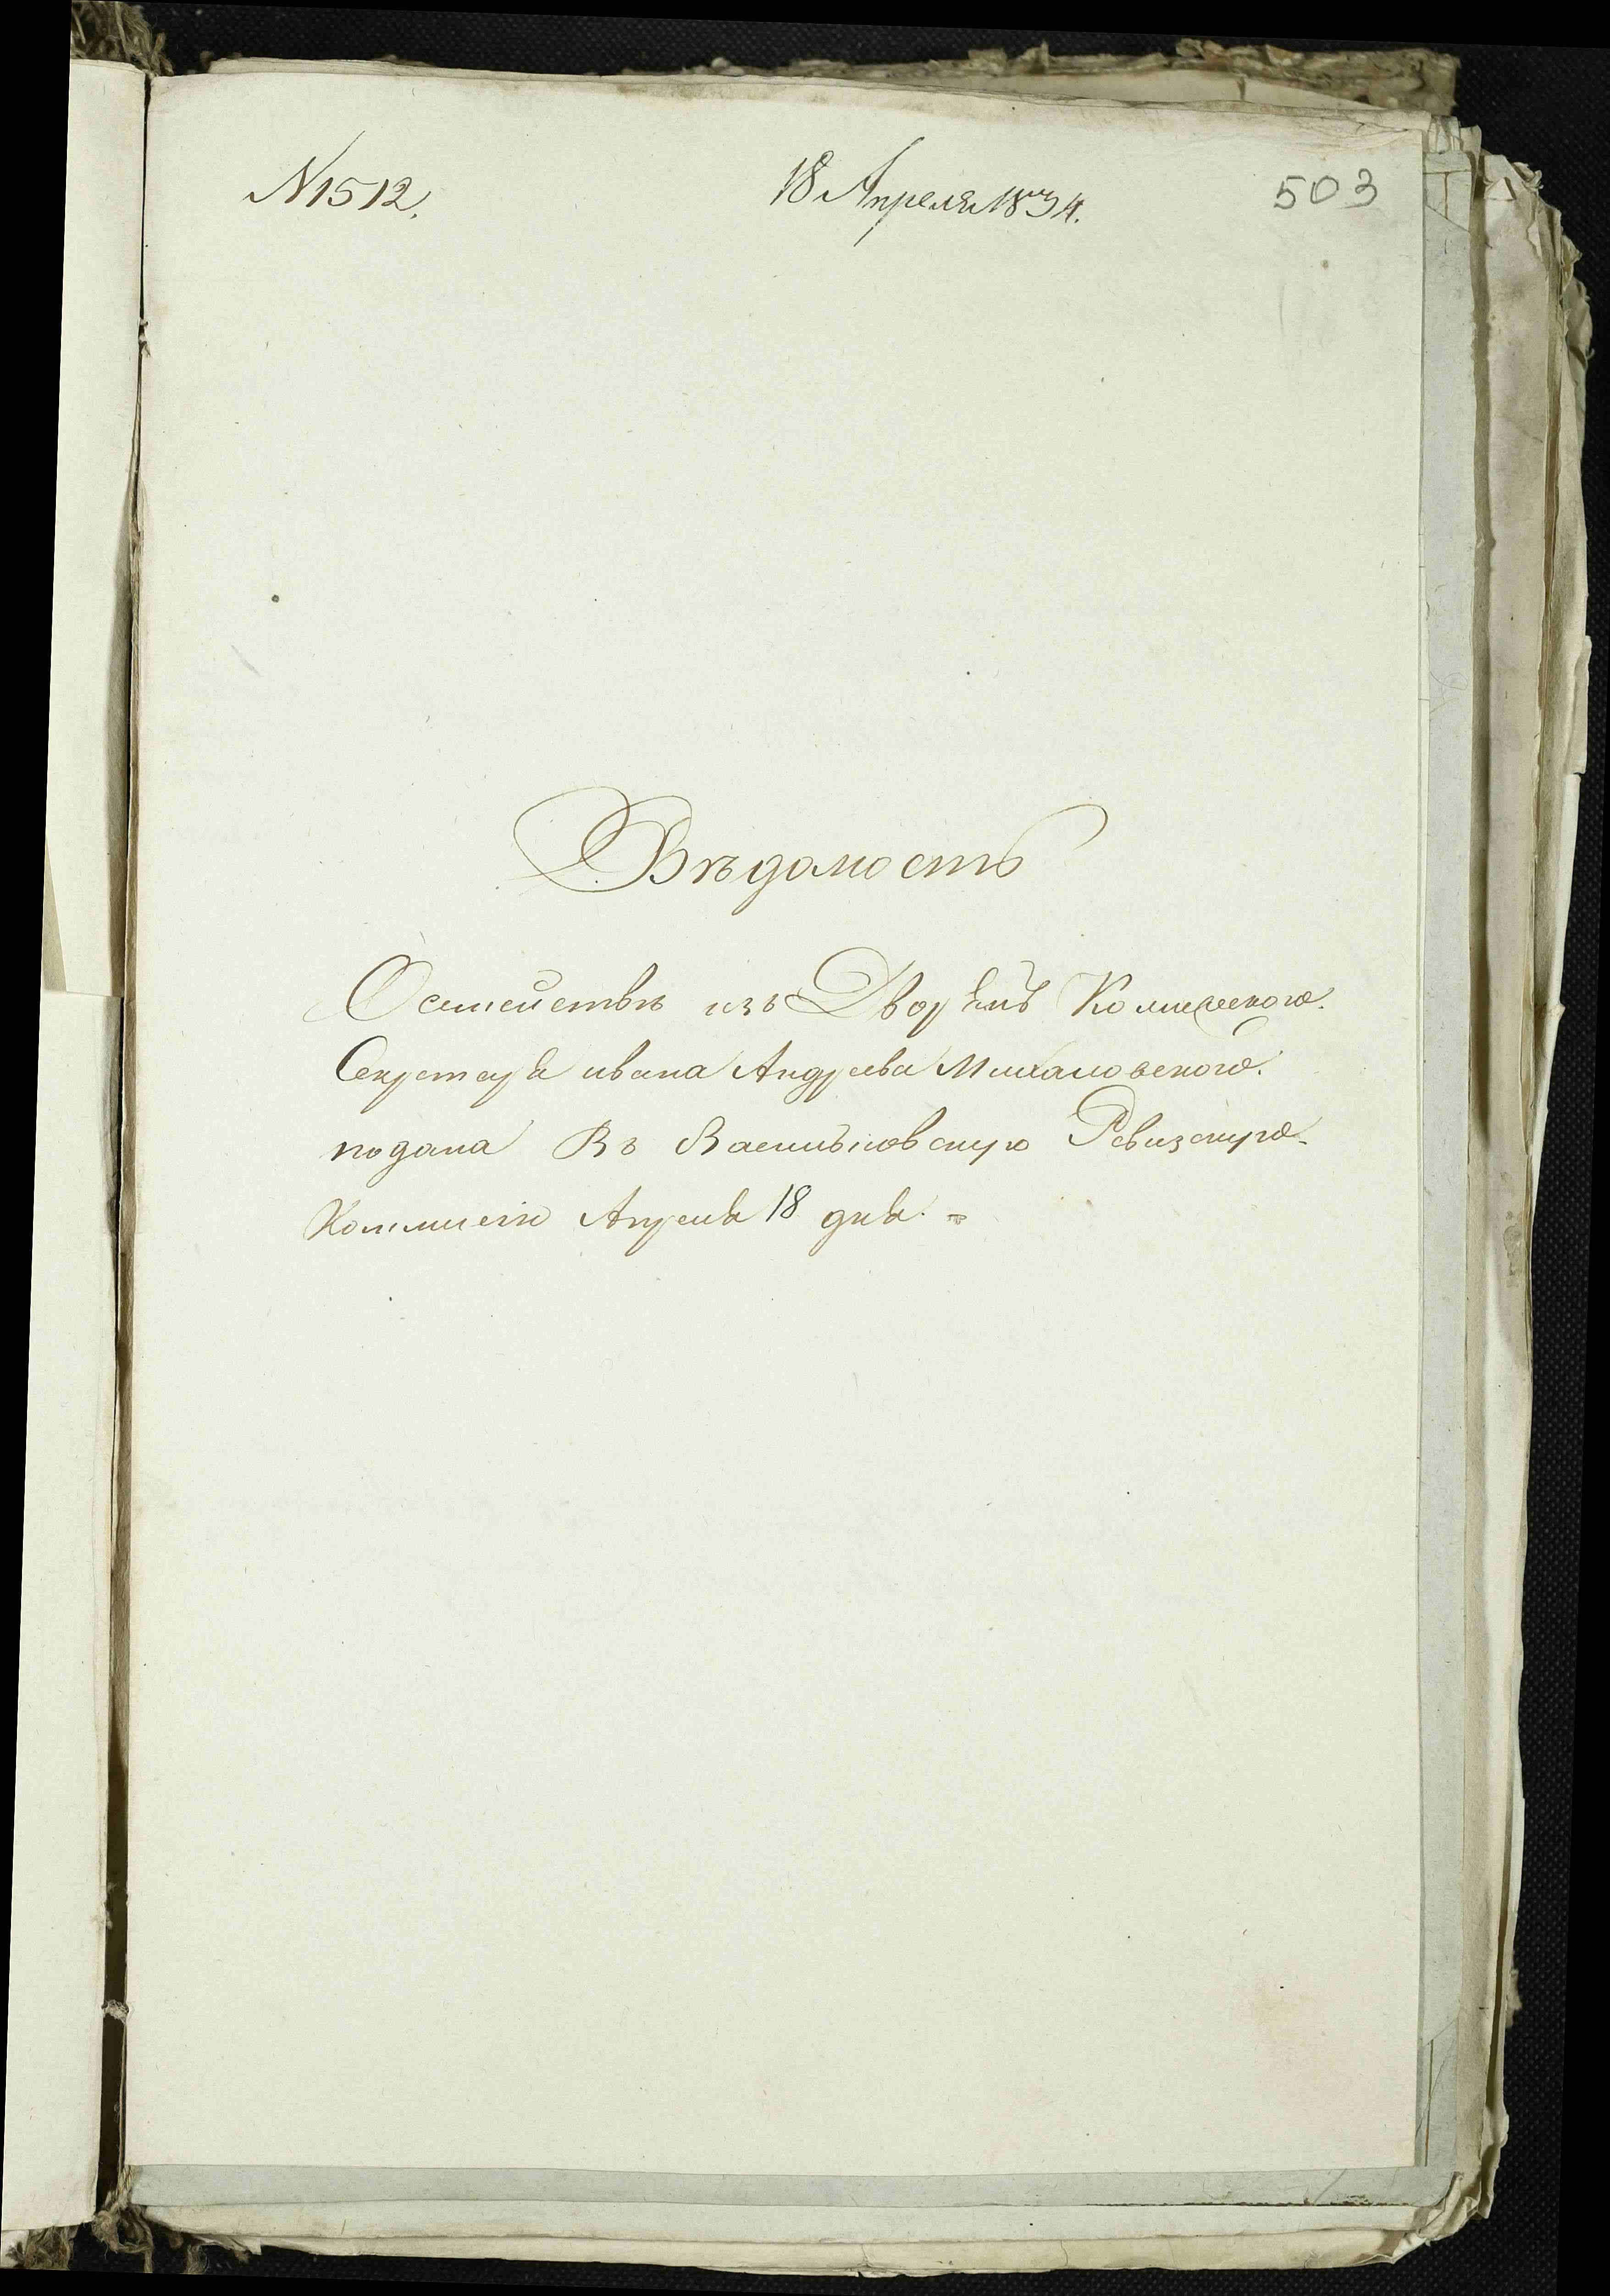 N 1512.
18 Апреля 1834.
503
Вѣдомость
О семействѣ изъ Дворянъ Колежского
Секретаря ивана Андреева Михаловского
подана Въ Васильковскую Ревизскую
Коммисію Апреля 18 дня.